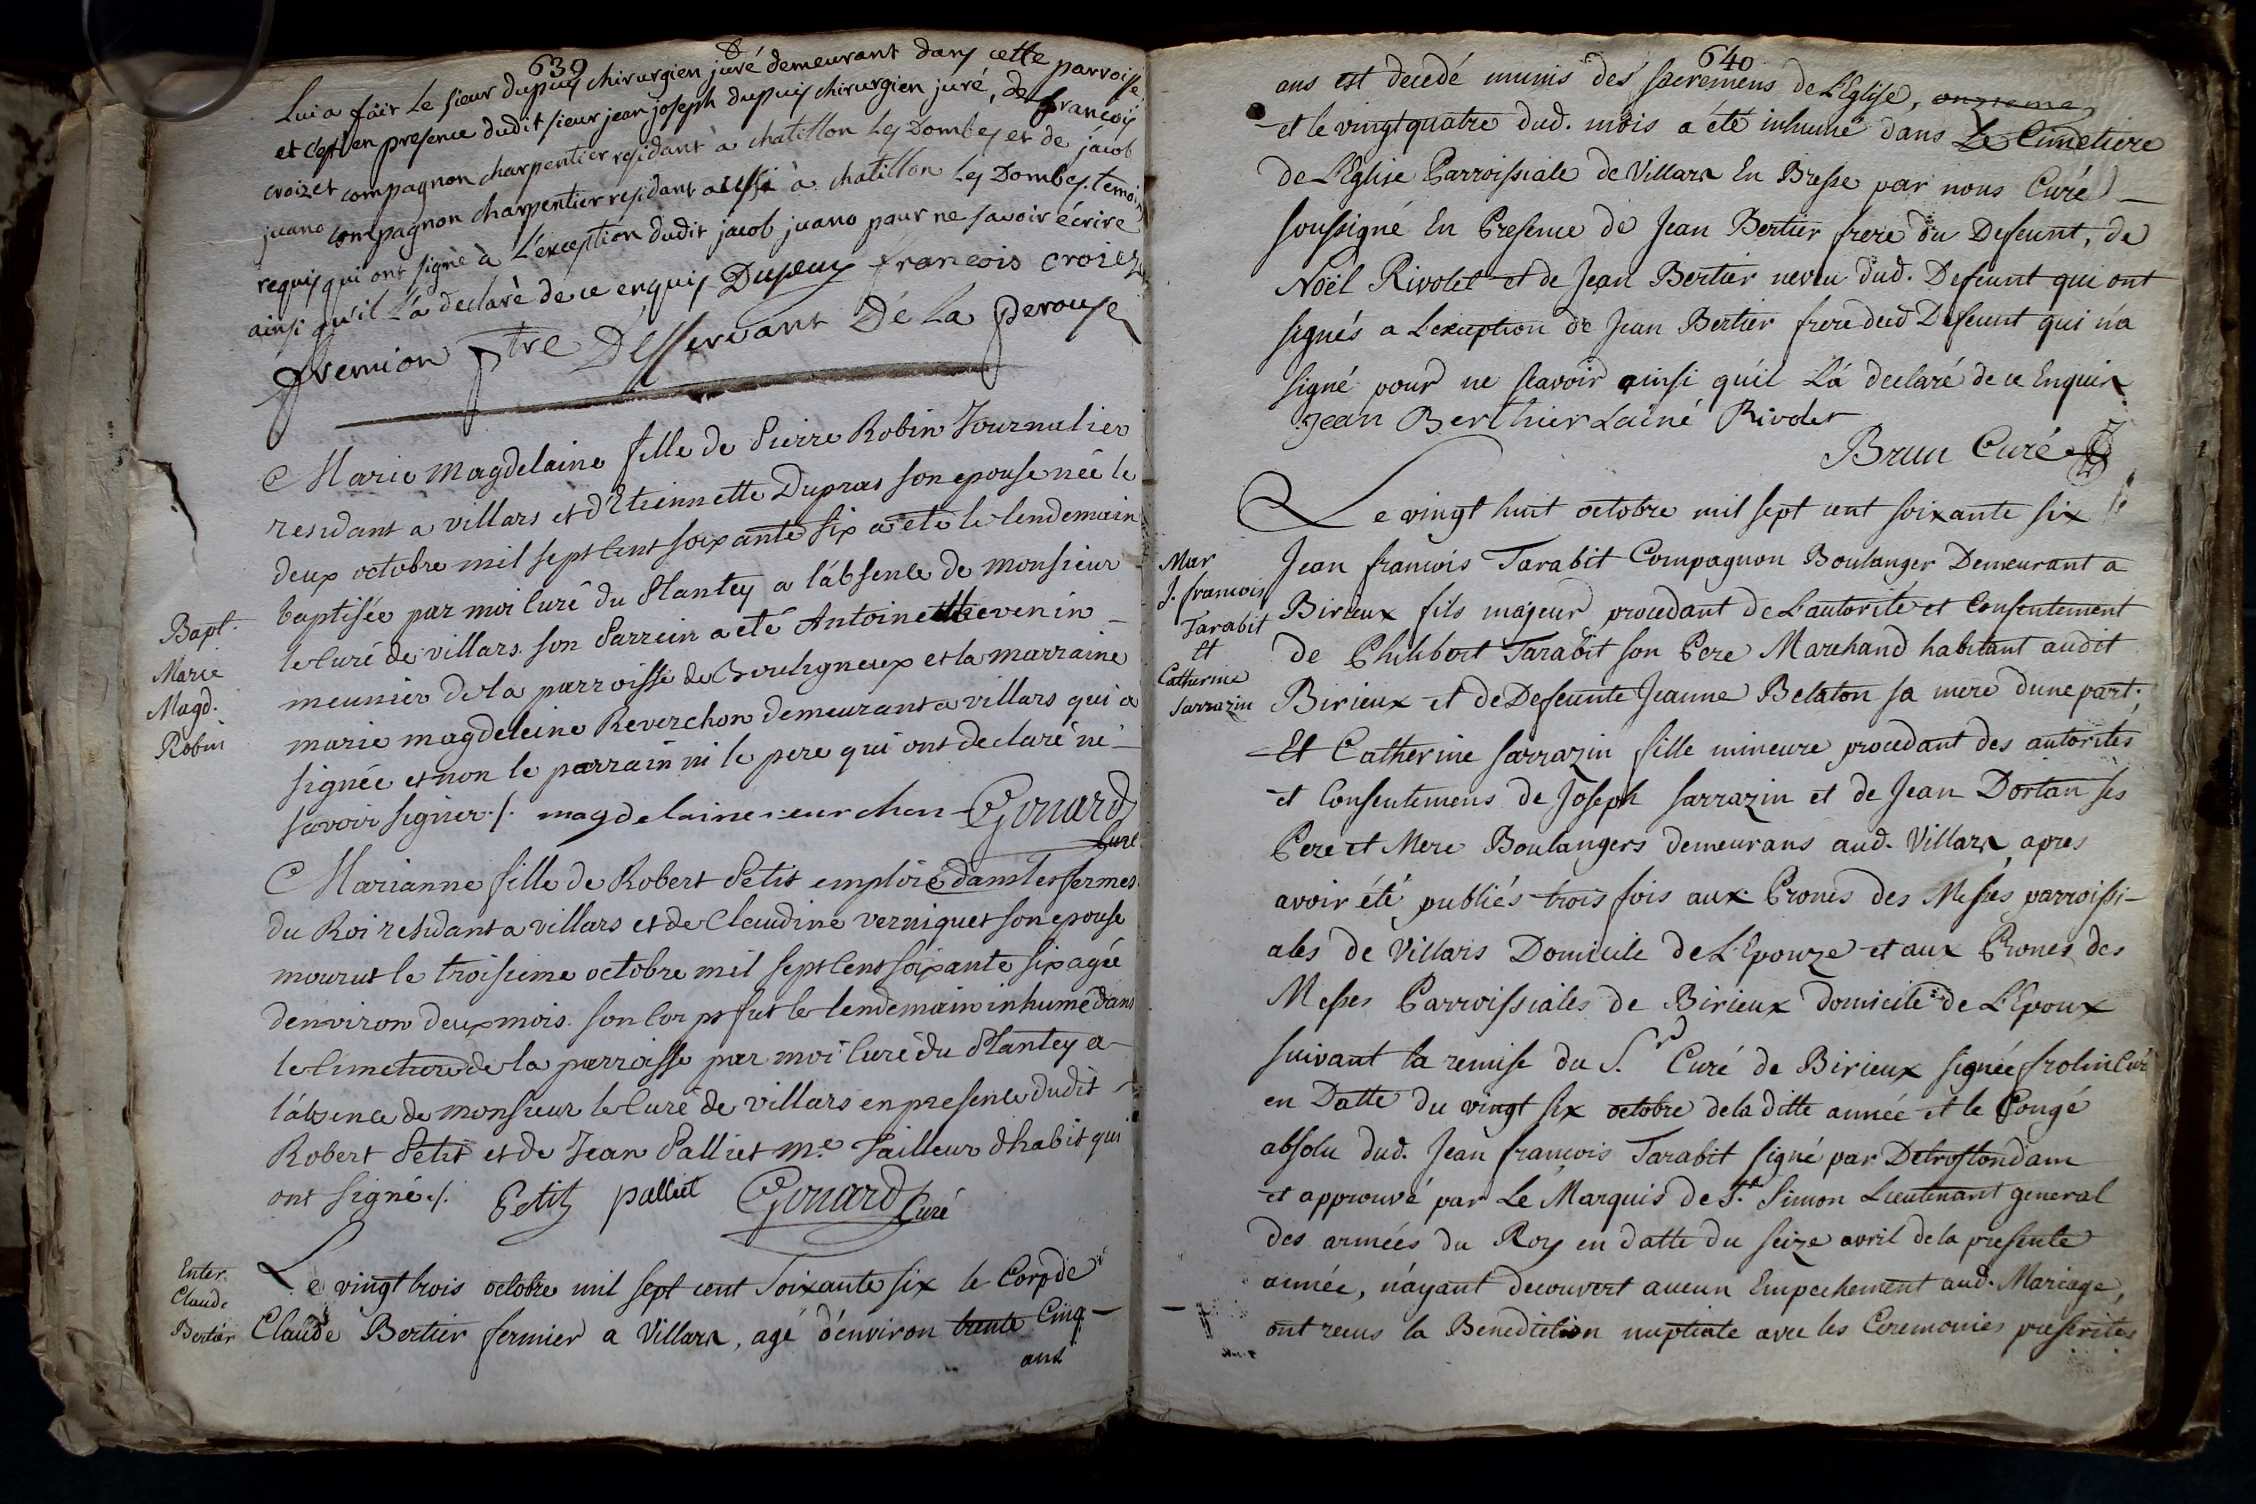 639
Lui a fair Le sieur dupuy chirurgien juré demeurant dans cette parroisse
et c'est en presence dudit sieur jean joseph dupuis chirurgien juré, de françois
croizet compagnon charpentier residant à chatillon Les Dombes et de jacob
juano compagnon charpentier residant aussi à chatillon Les Dombes temoins
requis qui ont signé à L'exception dudit jacob juano pour ne savoir écrire
ainsi qu'il L'a declaré de ce enquis Dupuy francois croizet
fremion ptre Desservant De La perouse
Marie magdelaine fille de Pierre Robin Journalier
residant a villars et d'Etiennette Dupras son epouse née le
deux octobre mil sept cent soixante six a eté le lendemain
baptisée par moi curé du Plantey a l'absence de monsieur
le curé de villars. son Parrein a eté Antoine thevenin
meunier de la parroisse de Bouligneux et la marraine
marie magdeleine Reverchon demeurant a villars qui a
signée et non le parrain ni le pere qui ont declaré ne
savoir signer ./. magdelaine reurchon Gonard
curé
Bapt.
Marie
Magd.
Robin
Marianne fille de Robert Petit emploié dans les fermes
du Roi residant a villars et de Claudine verniquet son epouse
mourut le troisieme octobre mil sept cent soixante six agée
denviron deux mois. son corps fut le lendemain inhumé dans
le cimetiere de la parroisse par moi curé du Plantey a
l'absence de monsieur le curé de villars en presence dudit
Robert Petit et de Jean Palliet me. Tailleur d'habit qui
ont signé ./. Petit palliet Gonard Curé
Enter.
Claude
Bertier
Le vingt trois octobre mil sept cent soixante six le Corp de
Claude Bertier fermier a Villars, agé d'environ trente Cinq
ans
640
ans est decedé munis des sacremens de L'Eglise,
et le vingt quatre dud. mois a été inhumé dans Le Cimetiere
de L'Eglise Parroissiale de Villars En Bresse par nous Curé
soussigné En Presence de Jean Bertier frere du Defeunt, de
Noël Rivolet et de Jean Bertier neveu dud. Defeunt qui ont
signés a L'exeuption de Jean Bertier frere dud Defeunt qui n'a
signé pour ne sçavoir ainsi qu'il L'a declaré de ce Enquis
Jean Berthier Lainé Rivolet
Brun Curé
Mar
J. francois
Tarabit
Et
Catherine
Sarrazin
Le vingt huit octobre mil sept cent soixante six
Jean francois Tarabit Compagnon Boulanger Demeurant a
Birieux fils majeur procedant de L'autorité et Consentement
de Philibert Tarabit son Pere Marchand habitant audit
Birieux et de Defeunte Jeanne Belaton sa mere dune part;
Et Catherine Sarrazin fille mineure procedant des autorités
et Consentemens de Joseph Sarrazin et de Jean Dortan ses
Pere et Mere Boulangers demeurans aud. Villars, apres
avoir été publiés trois fois aux Prones des Messes parroissi-
ales de Villars Domicile de L'Epouze et aux Prones des
Messes Parroissiales de Birieux domicile de L'Epoux
suivant la remise du S.r Curé de Birieux signée frolin Curé
en Datte du vingt six octobre de la ditte année et le Congé
absolu dud. Jean francois Tarabit signé par Detrostondam
et approuvé par Le Marquis de St. Simon Lieutenant general
des armées du Roy en datte du seize avril de la presente
année, n'ayant decouvert aucun Empechement aud. Mariage,
ont recus la Benediction nuptiale avec les Ceremonies prescrites